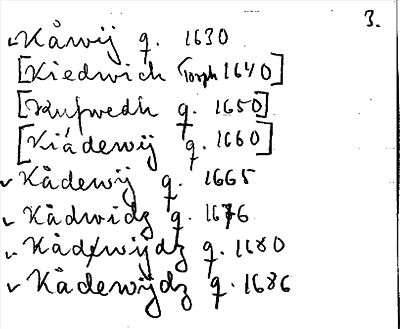 3.
✓ Kåwij q. 1630
[Kiedwich Torph 1640]
[Kupwedh q. 1650]
[Kiådewij q. 1660]
✓ Kådewij q. 1665
✓ Kådwidz q. 1676
✓ Kådwijdz q. 1680
✓ Kådewijdz q. 1686